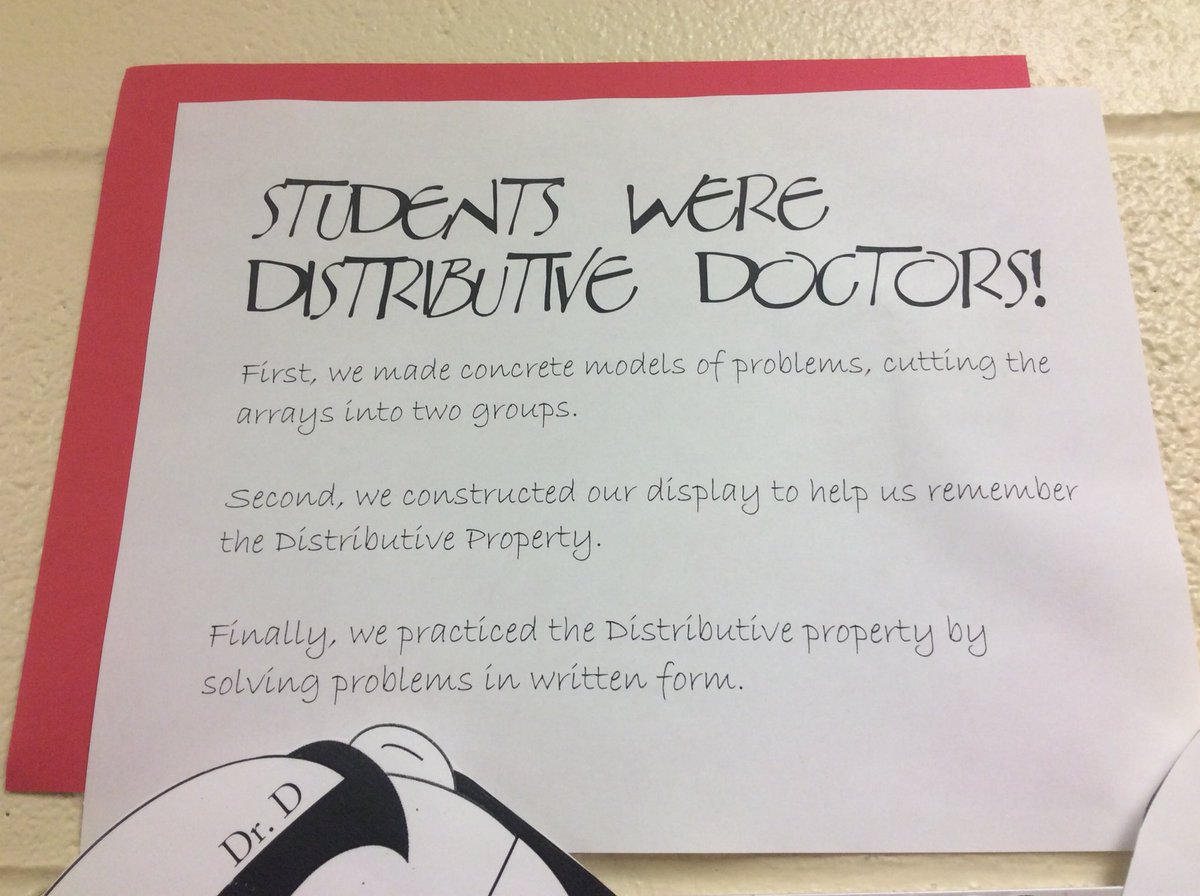 STUDENTS WERE
DISTRIBUTIVE DOCTORS!
First, we made concrete models of problems, cutting the
arrays into two groups.
Second, we constructed our display to help us remember
the Distributive Property.
Finally, we practiced the Distributive property by
solving problems in written form.
Dr. D